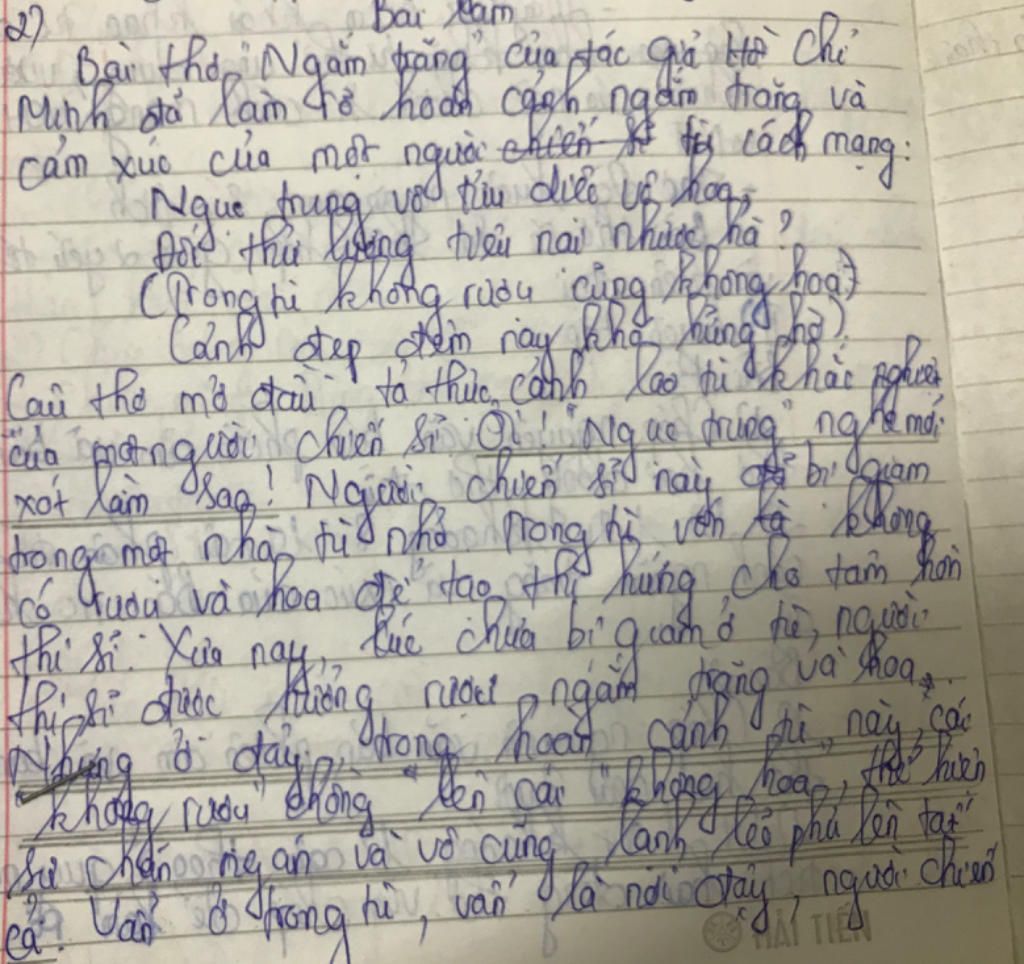 2) Bài làm
Bài thơ "Ngắm trăng" của tác giả Hồ Chí
Minh đã làm rõ hoàn cảnh ngắm trăng và
cảm xúc của một người chiến sĩ tù cách mạng:
Ngục trung vô tửu diệc vô hoa,
Đối thử lương tiêu nại nhược hà?
(Trong tù không rượu cũng không hoa,
Cảnh đẹp đêm nay khó hững hờ)
Câu thơ mở đầu tả thực cảnh lao tù khắc nghiệt
của một người chiến sĩ. Ôi! "Ngục trung" nghe mới
xót làm sao! Người chiến sĩ này đã bị giam
trong một nhà tù nhỏ. Trong tù vốn là không
có rượu và hoa để tạo thi hứng cho tâm hồn
thi sĩ. Xưa nay, lúc chưa bị giam ở tù, người
thi sĩ được thưởng rượu, ngắm trăng và hoa.
Nhưng ở đây, trong hoàn cảnh tù này, các
"không rượu" chồng lên cái "không hoa", thể hiện
sự chán ngán và vô cùng lạnh lẽo phủ lên tất
cả. Vẫn ở trong tù, vẫn là nơi đây, người chiến
HẢI TIẾN